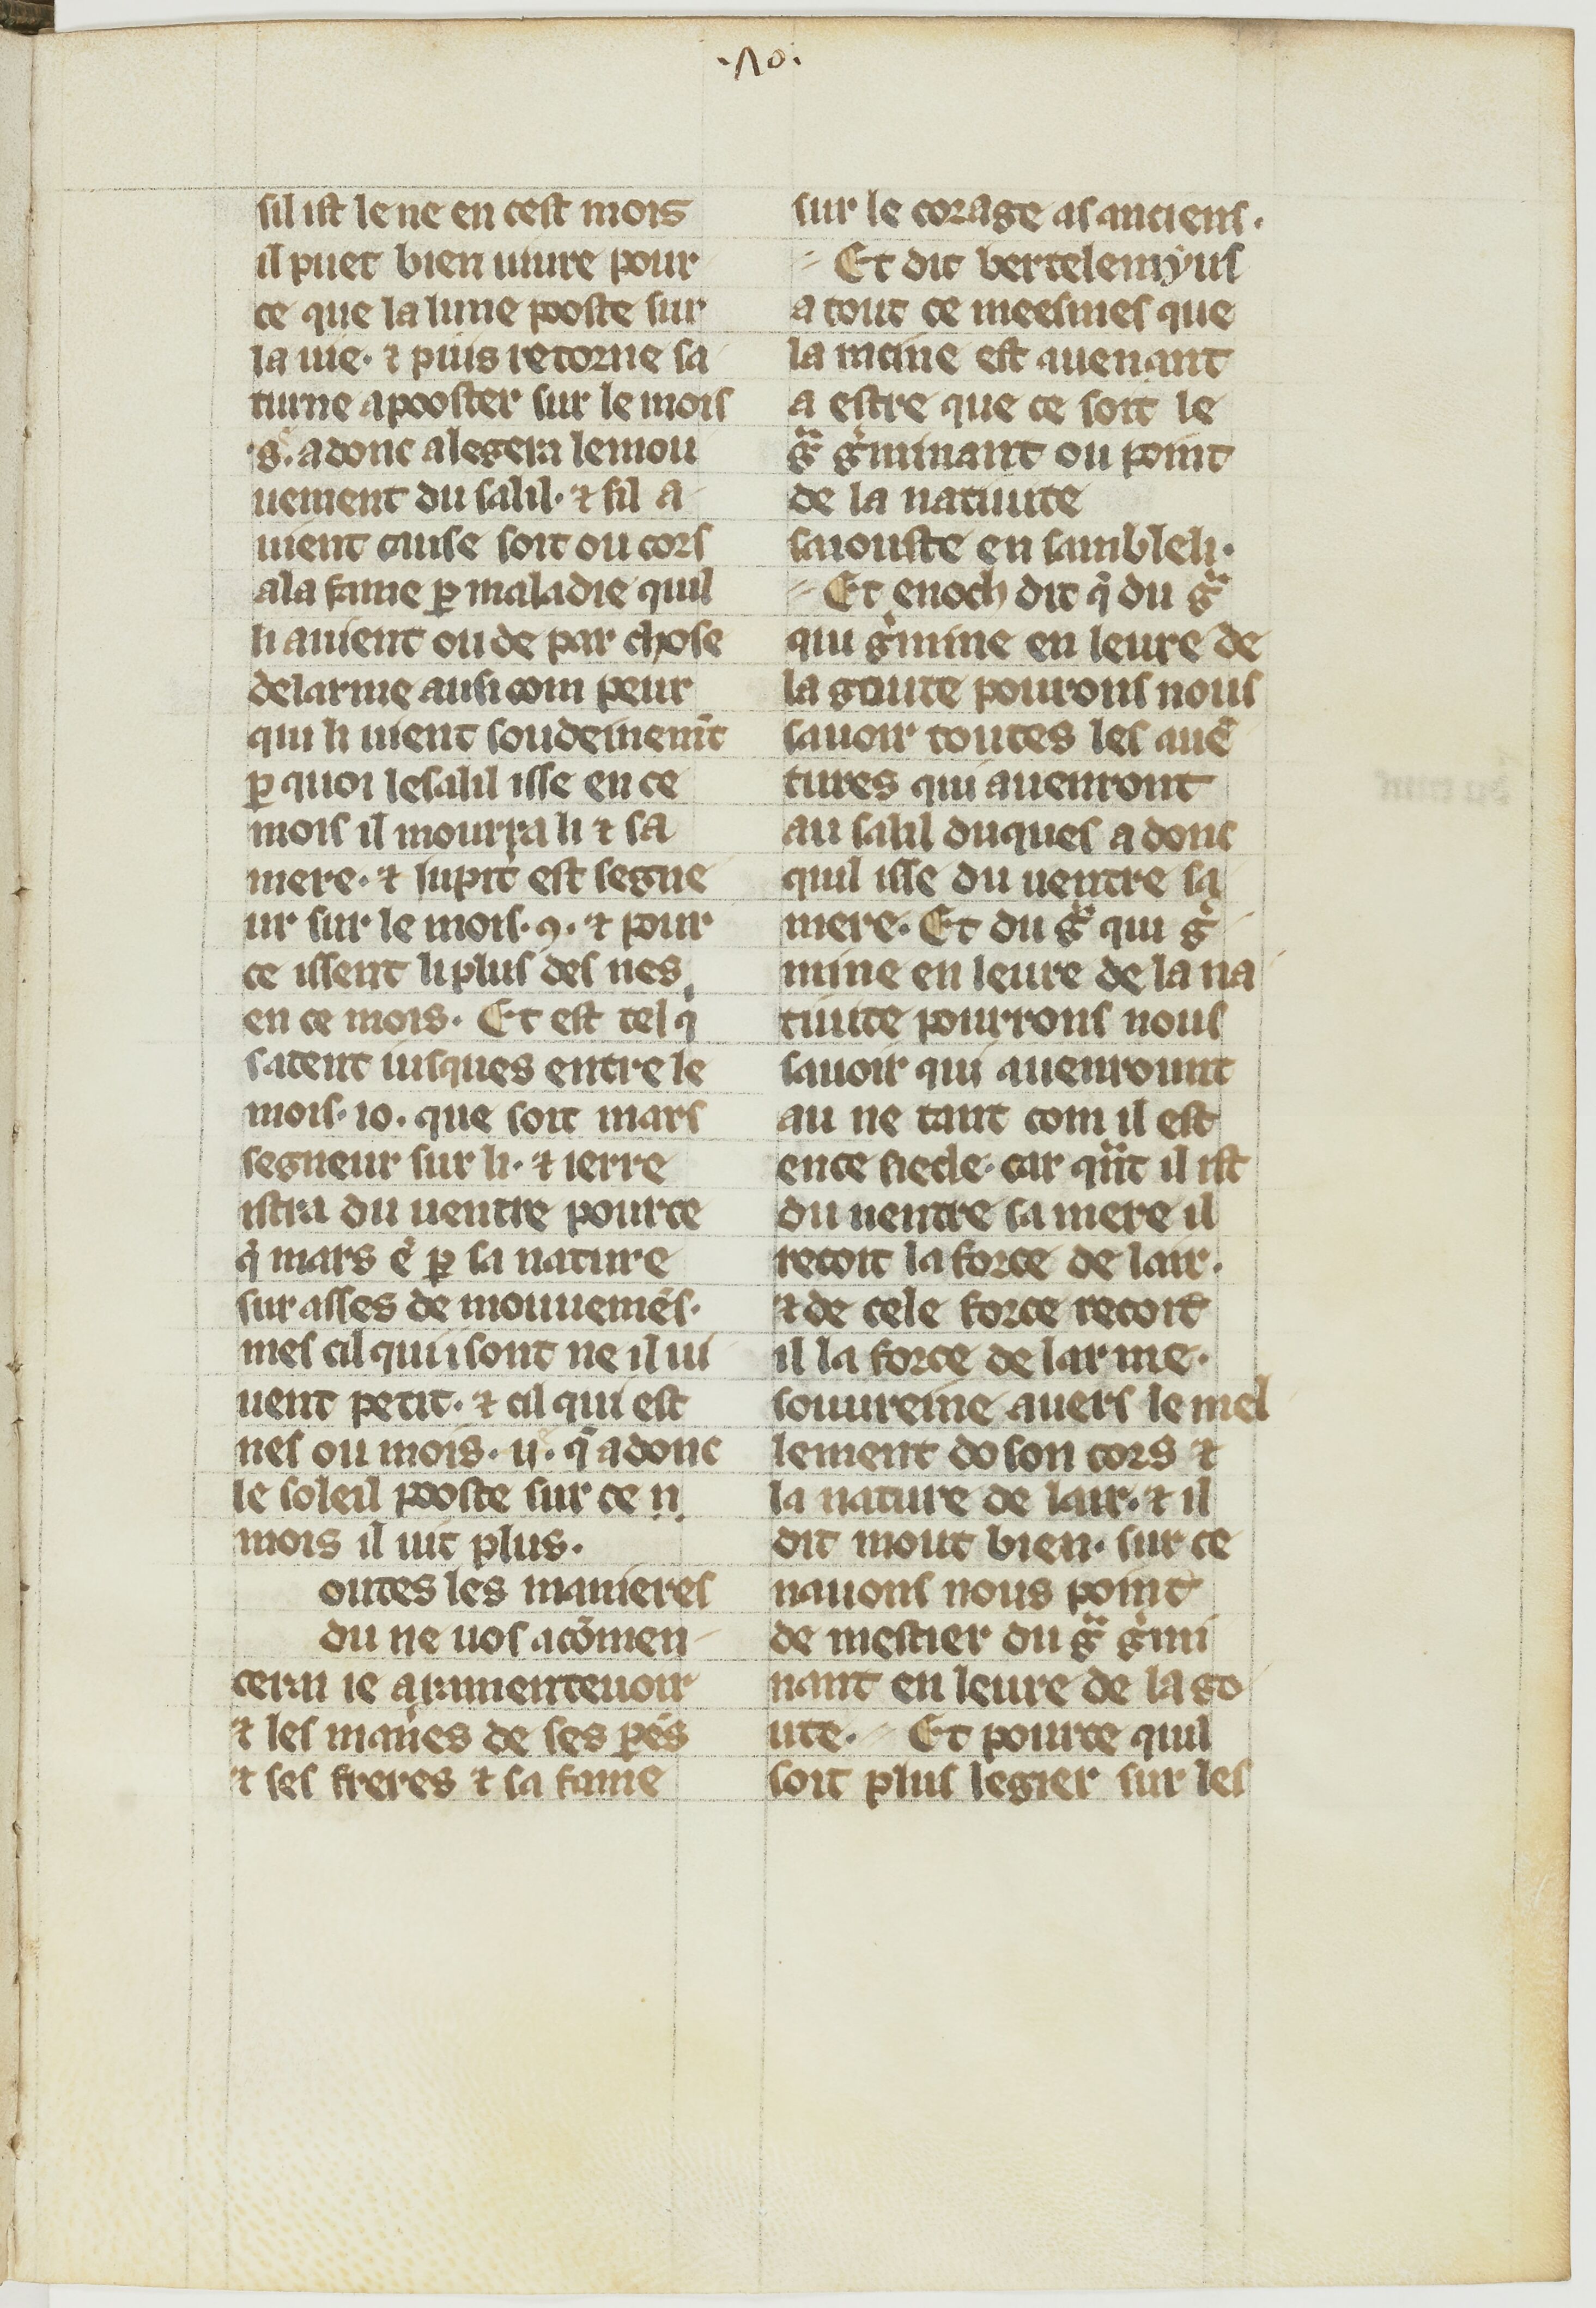 ·70·
sil ist le ne en cest mois
il puet bien uiure pour
ce que la lune poste sur
la uie· ⁊ puis retorne sa
turne a pooster sur le mois
·8·̊ adonc alegera le mou
uement du salil· ⁊ sil a
uient cause soit ou cors
a la fame ꝑ maladie quil
li auient ou de par chose
de larme ausi com peur
qui li uient soudeinem̄t
ꝑ quoi le salil isse en ce
mois il mourra li ⁊ sa
mere· ⁊ iupit̾ est segne
ur sur le mois· 9· ⁊ pour
ce issent li plus des nes
en ce mois· Et est tel q̓
satent iusques entre le
mois· 10· que soit mars
segneur sur li· ⁊ ierre
istra du uentre pource
q̓ mars ē ꝑ sa nature
sur asses de mouuemēs·
mes cil qui i sont ne il ui
uent petit· ⁊ cil qui est
nes ou mois· 11·̊ q̄ adonc
le soleil pooste sur ce
mois il uit plus·
outes les manieres
du ne uos acōmen
cerai ie a ramenteuoir
⁊ les man̓es de ses peᷤs
⁊ ses freres ⁊ sa fame
sur le corage as anciens·
Et dit bertelemẏus
a tout ce meesmes que
la meine est auenant
a estre que ce soit le
gᷓ g̓minant ou point
de la natiuite
saiouste en sanbleli·
Et enoch dit q̓ du gᷓ
qui g̓mine en leure de
la goute pourons nous
sauoir toutes les auē
tures qui auenront
au salil duques adonc
quil isse du uentre sa
mere· Et du gᷓ qui g̓
mine en leure de la na
tiuite pourrons nous
sauoir qui auenrount
au ne tant com il est
en ce siecle· car qᷓnt il ist
du uentre sa mere il
recoit la force de lair·
⁊ de cele force recoit
il la force de larme·
souureine auers le mel
lement do son cors ⁊
la nature de lair· ⁊ il
dit mout bien· sur ce
nauons nous point
de mestier du gᷓ g̓mi
nant en leure de la go
ute· Et pource quil
soit plus legier sur les